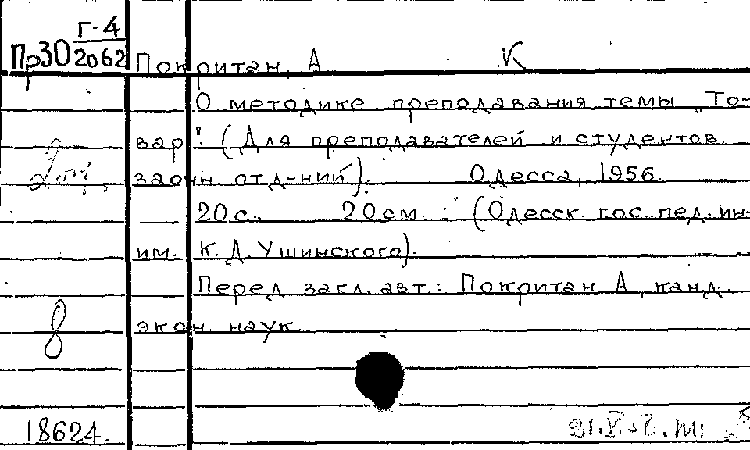 Г-4
Пр30 2062
Покритан, А К
О методике преподавания темы „То-
вар". (Для преподавателей и студентов
заочн отд-ний). Одесса, 1956.
20с. 20см. (Одесск. гос. пед. ин-
им. К. Д. Ушинского).
Перед загл. авт.: Покритан А, канд.
экон. наук
8
18624.